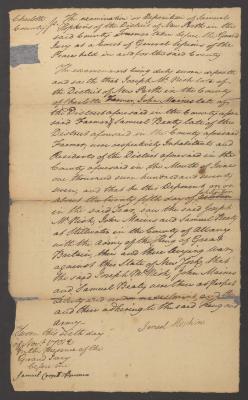 Charlotte County ss. The examination or Deposition of Samuel
Hopkins of the District of New Perth in the
said County Yeoman taken before the Grand
Jury at a Court of General Sessions of the
Peace held in and for the said County
The examinant being duly sworn deposeth
and saith that Joseph McKish late of
the District of New Perth in the County
of Charlotte Farmer, John Maines late of
the District aforesaid in the County afore
said Farmer, Samuel Beaty late of the
District aforesaid in the County aforesaid
Farmer, were respectively Inhabitants and
Residents of the District aforesaid in the
County aforesaid in the Month of
one thousand seven hundred and seventy
seven, and that he this Deponent on or
about the twenty fifth day of
in the said Year, saw the said Joseph
McKish, John Maines and Samuel Beaty
at Stillwater in the County of Albany
with the Army of the King of Great
Britain, then and there levying war
against this State of New York, that
the said Joseph McKish, John Maines
and Samuel Beaty were then as
and under
and there adhering to the said King and
Army.
Samuel Hopkins
Taken this day
of 1782
in the Presence of the
Grand Jury
before me
Samuel